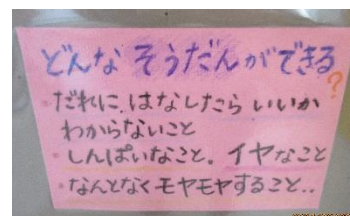 どんな そうだんができる?
・だれに、はなしたら いいか
わからないこと
・しんぱいなこと。イヤなこと
・なんとなくモヤモヤすること..